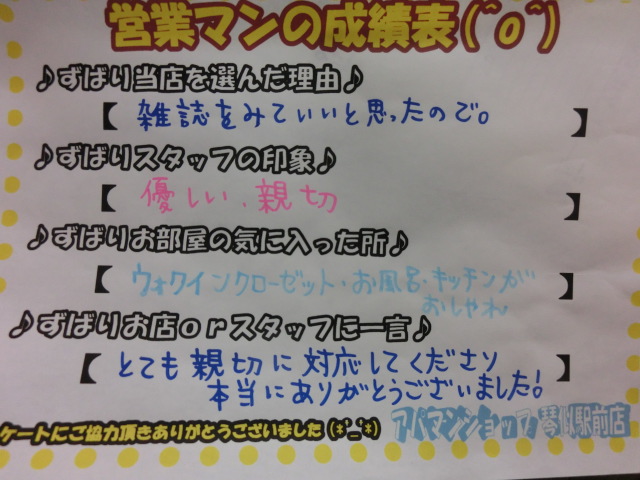 営業マンの成績表(^o^)
♪ずばり当店を選んだ理由♪
【 雑誌をみていいと思ったので。 】
♪ずばりスタッフの印象♪
【 優しい、親切 】
♪ずばりお部屋の気に入った所♪
【 ウォクインクローゼット・お風呂・キッチンが
おしゃれ 】
♪ずばりお店orスタッフに一言♪
【 とても親切に対応してくださり
本当にありがとうございました! 】
ケートにご協力頂きありがとうございました(*'_'*)
アパマンショップ琴似駅前店